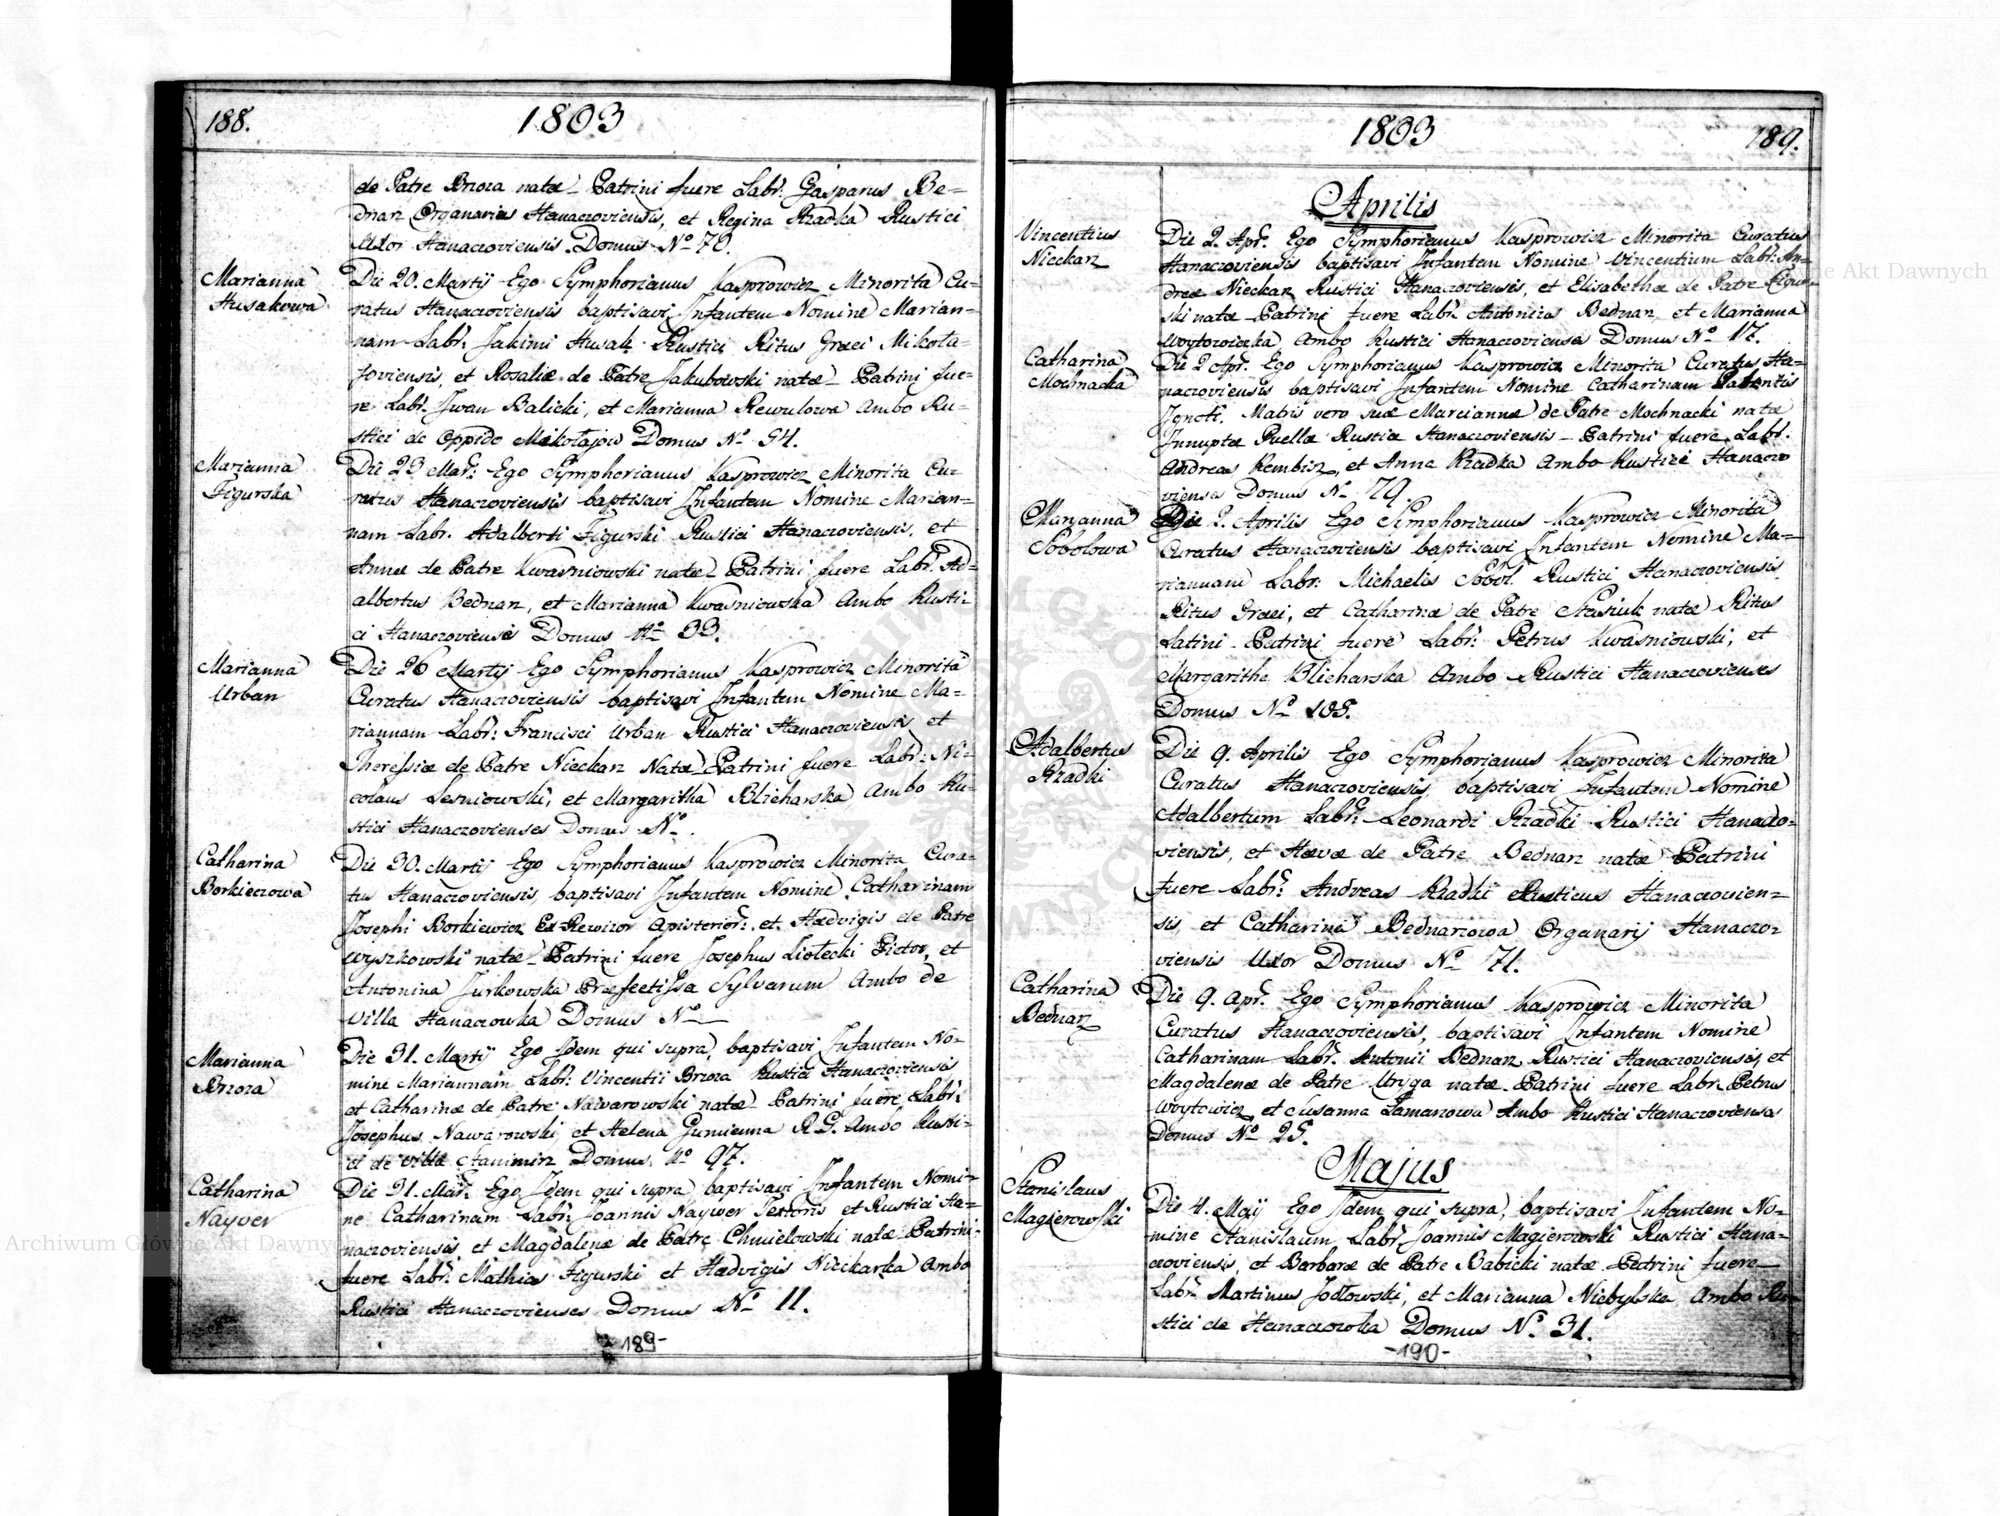 188.
1803
de Patre Brzoza natæ - Patrini fuere Labr: Gasparus Be=
dnarz Organarius Hanaczoviensis, et Regina Rzadka Rustici
Uxor Hanaczoviensis. Domus No 70.
Marianna
Husakowa
Die 20. Martij Ego Symphorianus Kasprowicz Minorita Cu=
ratus Hanaczoviensis baptisavi Infantem Nomine Marian=
nam Labr: Jakimi Husak Rustici Ritus Græci Mikoła=
joviensis, et Rosaliæ de Patre Jakubowski natæ - Patrini fue=
re Labr. Iwan Balicki, et Marianna Rewulowa Ambo Ru=
stici de Oppido Mikołajow Domus No 54.
Marianna
Figurska
Die 23 Mar: Ego Symphorianus Kasprowicz Minorita Cu=
ratus Hanaczoviensis baptisavi Infantem Nomine Marian=
nam Labr. Adalberti Figurski Rustici Hanaczoviensis, et
Annæ de Patre Kwasniowski natæ - Patrini fuere Labr. Ad=
albertus Bednarz, et Marianna Kwasniowska Ambo Rusti=
ci Hanaczovienses Domus No 33.
Marianna
Urban
Die 26 Martij Ego Symphorianus Kasprowicz Minorita
Curatus Hanaczoviensis baptisavi Infantem Nomine Ma=
riannam Labr: Francisci Urban Rustici Hanaczoviensis et
Theressiæ de Patre Nieckarz Natæ - Patrini fuere Labr: Ni=
colaus Lesniowski, et Margaritha Blicharska Ambo Ru=
stici Hanaczovienses Domus No.
Catharina
Borkieczowa
Die 30. Martij Ego Symphorianus Kasprowicz Minorita Cura=
tus Hanaczoviensis, baptisavi Infantem Nomine Catharinam
Josephi Borkiewicz Ex-Rewizor et Hædvigis de Patre
Wyszkowski natæ - Patrini fuere Josephus Liotecki Pictor, et
Antonina Jurkowska Præfectissa Sylvarum Ambo de
Villa Hanaczowka Domus No —
Marianna
Brzoza
Die 31. Martij Ego Idem qui supra, baptisavi Infantem No=
mine Mariannam Labr: Vincentii Brzoza Rustici Hanaczoviensis
et Catharinæ de Patre Nawarowski natæ - Patrini fuere Labr:
Josephus Nawarowski, et Helena Gumienna R.G. Ambo Rusti=
ci de Villa Stanimirz Domus No 97.
Catharina
Nayver
Die 31. Mar: Ego Idem qui supra, baptisavi Infantem Nomi=
ne Catharinam Labr: Joannis Nayver Textoris et Rustici Ha=
naczoviensis, et Magdalenæ de Patre Chmielowski natæ Patrini
fuere Labr: Mathias Figurski et Hædvigis Nieckarka Ambo
Rustici Hanaczovienses Domus No 11.
189-
1803
189.
Aprilis
Vincentius
Nieckarz
Die 2. Apr. Ego Symphorianus Kasprowicz Minorita Curatus
Hanaczoviensis baptisavi Infantem Nomine Vincentium Labr. An=
dreæ Nieckarz Rustici Hanaczoviensis, et Elisabethæ de Patre Figur=
ski natæ Patrini fuere Labr: Antonius Bednarz, et Marianna
Woytowiczka Ambo Rustici Hanaczovienses Domus No 17.
Catharina
Mochnacka
Die 2 Apr. Ego Symphorianus Kasprowicz Minorita Curatus Ha=
naczoviensis baptisavi Infantem Nomine Catharinam Parentis
Ignoti. Matris vero suæ Mariannæ de Patre Mochnacki natæ
Innuptæ Puellæ Rusticæ Hanaczoviensis - Patrini fuere Labr.
Andreas Rembisz, et Anna Rzadka Ambo Rustici Hanaczo
vienses Domus No 79.
Maryanna
Sobolowa
Die 2. Aprilis Ego Symphorianus Kasprowicz Minorita
Curatus Hanaczoviensis baptisavi Infantem Nomine Ma=
riannam Labr: Michaelis Sobol Rustici Hanaczoviensis
Ritus Græci, et Catharinæ de Patre Stasiuk natæ Ritus
Latini - Patrini fuere Labr: Petrus Kwasniowski, et
Margaritha Blicharska Ambo Rustici Hanaczovienses
Domus No 105.
Adalbertus
Rzadki
Die 9. Aprilis Ego Symphorianus Kasprowicz Minorita
Curatus Hanaczoviensis baptisavi Infantem Nomine
Adalbertum Labr: Leonardi Rzadki Rustici Hanaczo=
viensis, et Hævæ de Patre Bednarz natæ Patrini
fuere Labr: Andreas Rzadki Rusticus Hanaczovien=
sis et Catharina Bednarzowa Organarij Hanaczo=
viensis Uxor Domus No 71.
Catharina
Bednarz
Die 9. Apr. Ego Symphorianus Kasprowicz Minorita
Curatus Hanaczoviensis, baptisavi Infantem Nomine
Catharinam Labr. Antonii Bednarz Rustici Hanaczoviensis, et
Magdalenæ de Patre Utryga natæ Patrini fuere Labr. Petrus
Woytowicz, et Susanna Lamaszowa Ambo Rustici Hanaczovienses
Domus No 25.
Majus
Stanislaus
Magierowski
Die 4. Maij Ego Idem qui supra, baptisavi Infantem No=
mine Stanislaum Labr. Joannis Magierowski Rustici Hana=
czoviensis, et Barbaræ de Patre Babicki natæ Patrini fuere
Labr. Martinus Jodłowski, et Marianna Niebylska Ambo Ru=
stici de Hanaczowka Domus No 31.
-190-
Archiwum Główne Akt Dawnych
Archiwum Główne Akt Dawnych